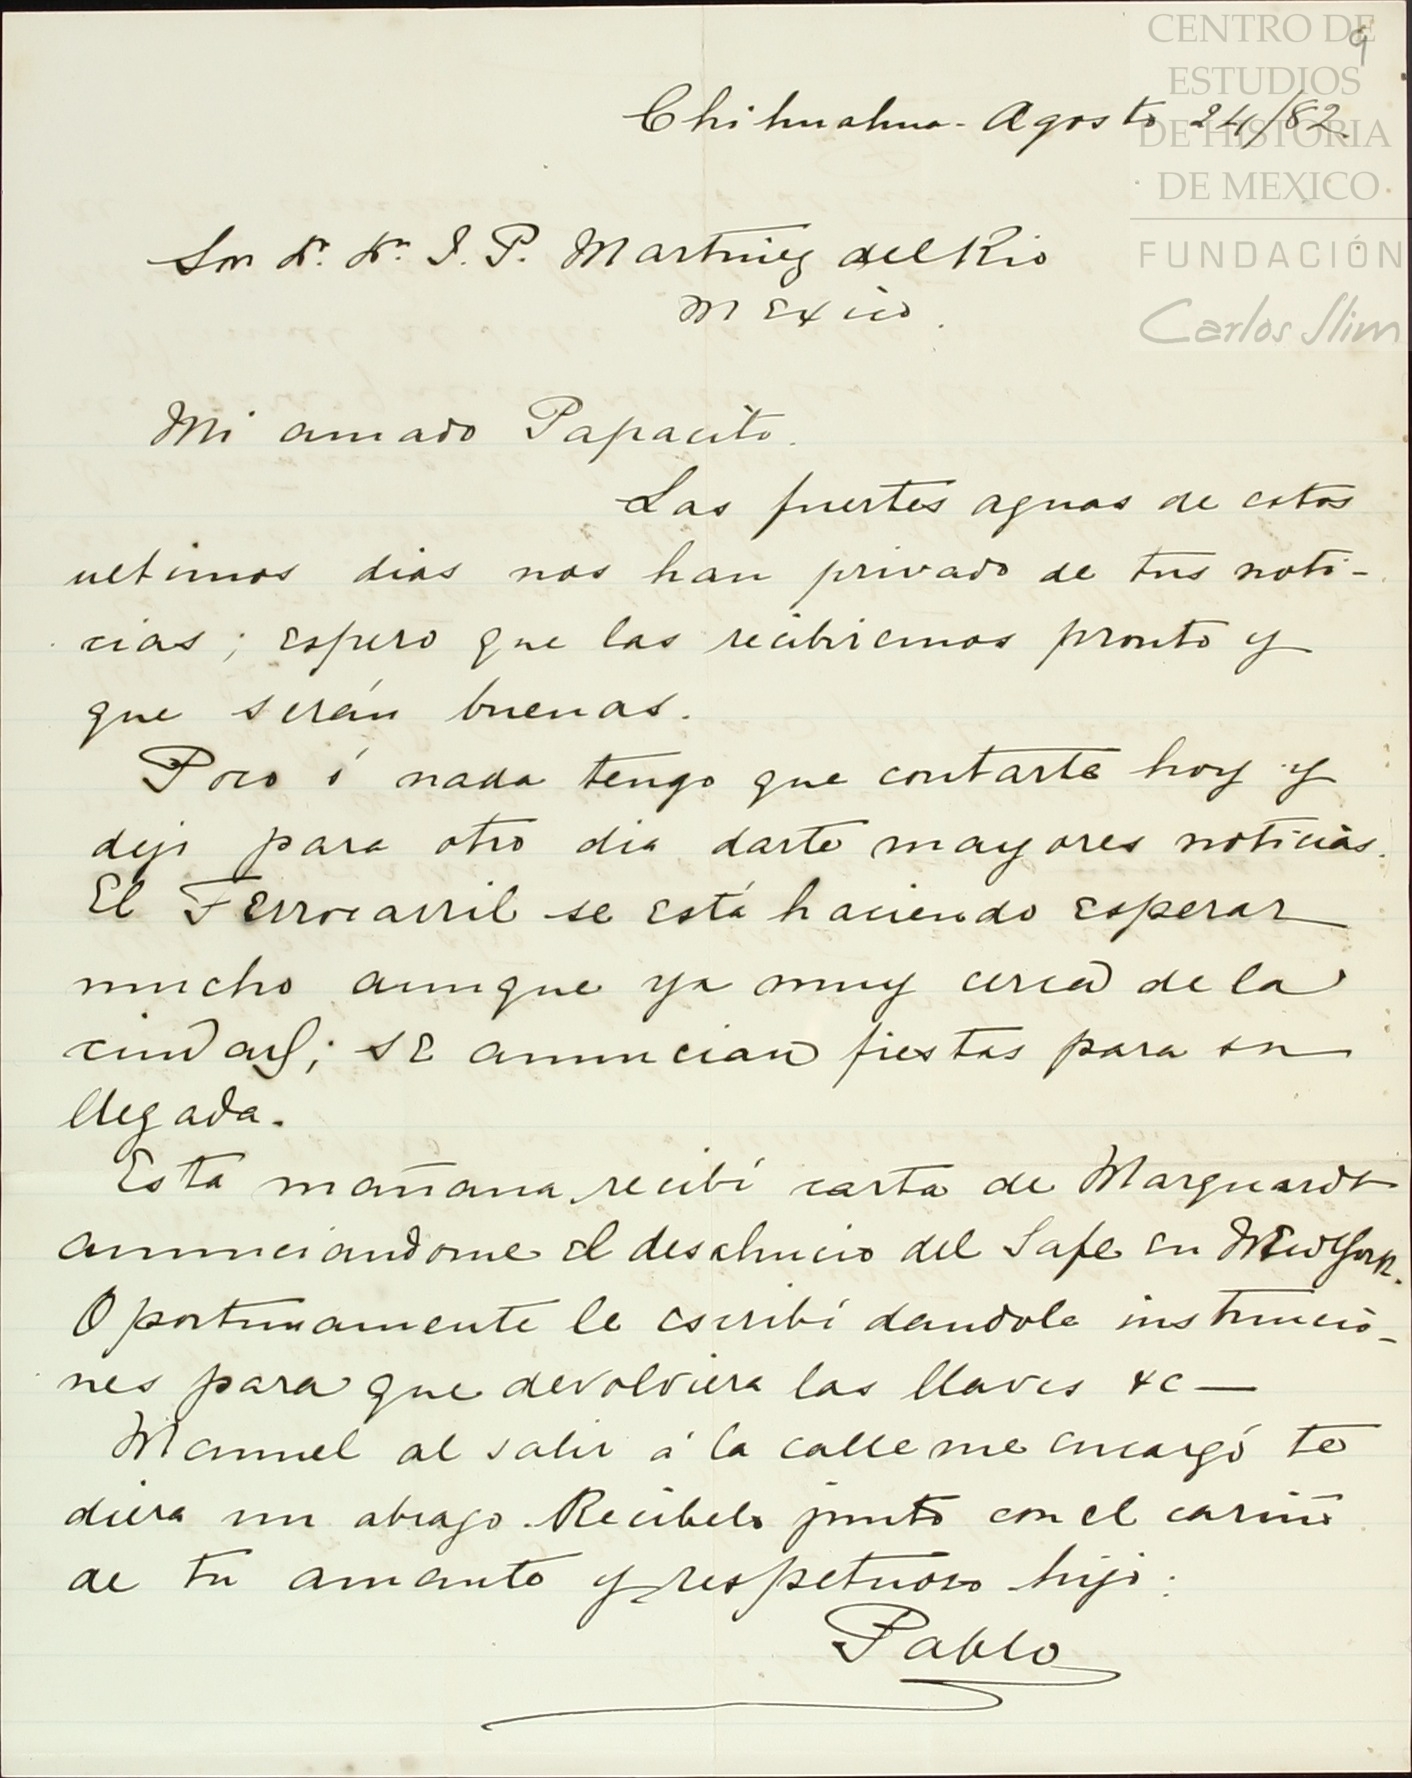 CENTRO DE
ESTUDIOS
DE HISTORIA
DE MEXICO
FUNDACIÓN
Carlos Slim
9
Chihuahua. Agosto 24/82.
Sor Dr. Dn. J. P. Martinez del Rio
Mexico.
Mi amado Papacito.
Las fuertes aguas de estos
ultimos dias nos han privado de tus noti-
cias; espero que las recibiremos pronto y
que serán buenas.
Poco ó nada tengo que contarte hoy y
dejo para otro dia darte mayores noticias.
El Ferrocarril se está haciendo esperar
mucho aunque ya muy cerca de la
ciudad; se anuncian fiestas para su
llegada.
Esta mañana recibí carta de Marquardt
anunciandome el desahucio del Safe en New York.
Oportunamente le escribí dandole instruccio-
nes para que devolviera las llaves &c—
Manuel al salir á la calle me encargó te
diera un abrazo. Recibelo junto con el cariño
de tu amante y respetuoso hijo:
Pablo